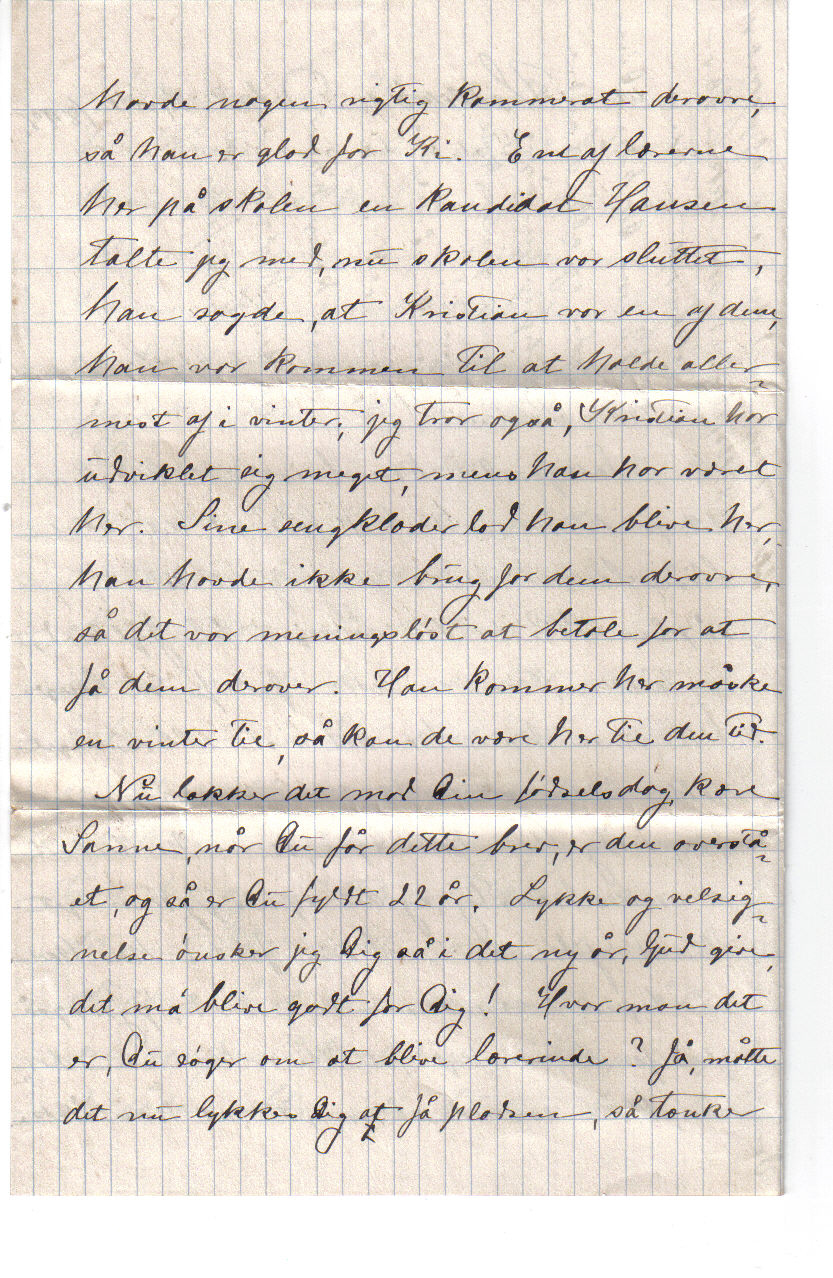 havde nogen rigtig kammerat derovre,
så han er glad for Ki. En af lærerne
her på skolen en kandidat Hansen
talte jeg med, nu skolen var sluttet,
han sagde, at Kristian var en af dem,
han var kommen til at holde aller-
mest af i vinter; jeg tror også, Kristian har
udviklet sig meget, mens han har været
her. Sine sengklæder lod han blive her,
han havde ikke brug for dem derovre,
så det var meningsløst at betale for at
få dem derover. Han kommer her måske
en vinter til, så kan de være her til den tid.
Nu lakker det mod Din fødselsdag, kære
Sanne, når Du får dette brev, er den overstå-
et, og så er Du fyldt 22 år. Lykke og velsig-
nelse ønsker jeg Dig så i det ny år, Gud give,
det må blive godt for Dig! Hvor mon det
er, Du søger om at blive lærerinde? Ja, måtte
det nu lykkes Dig at få pladsen, så tænker